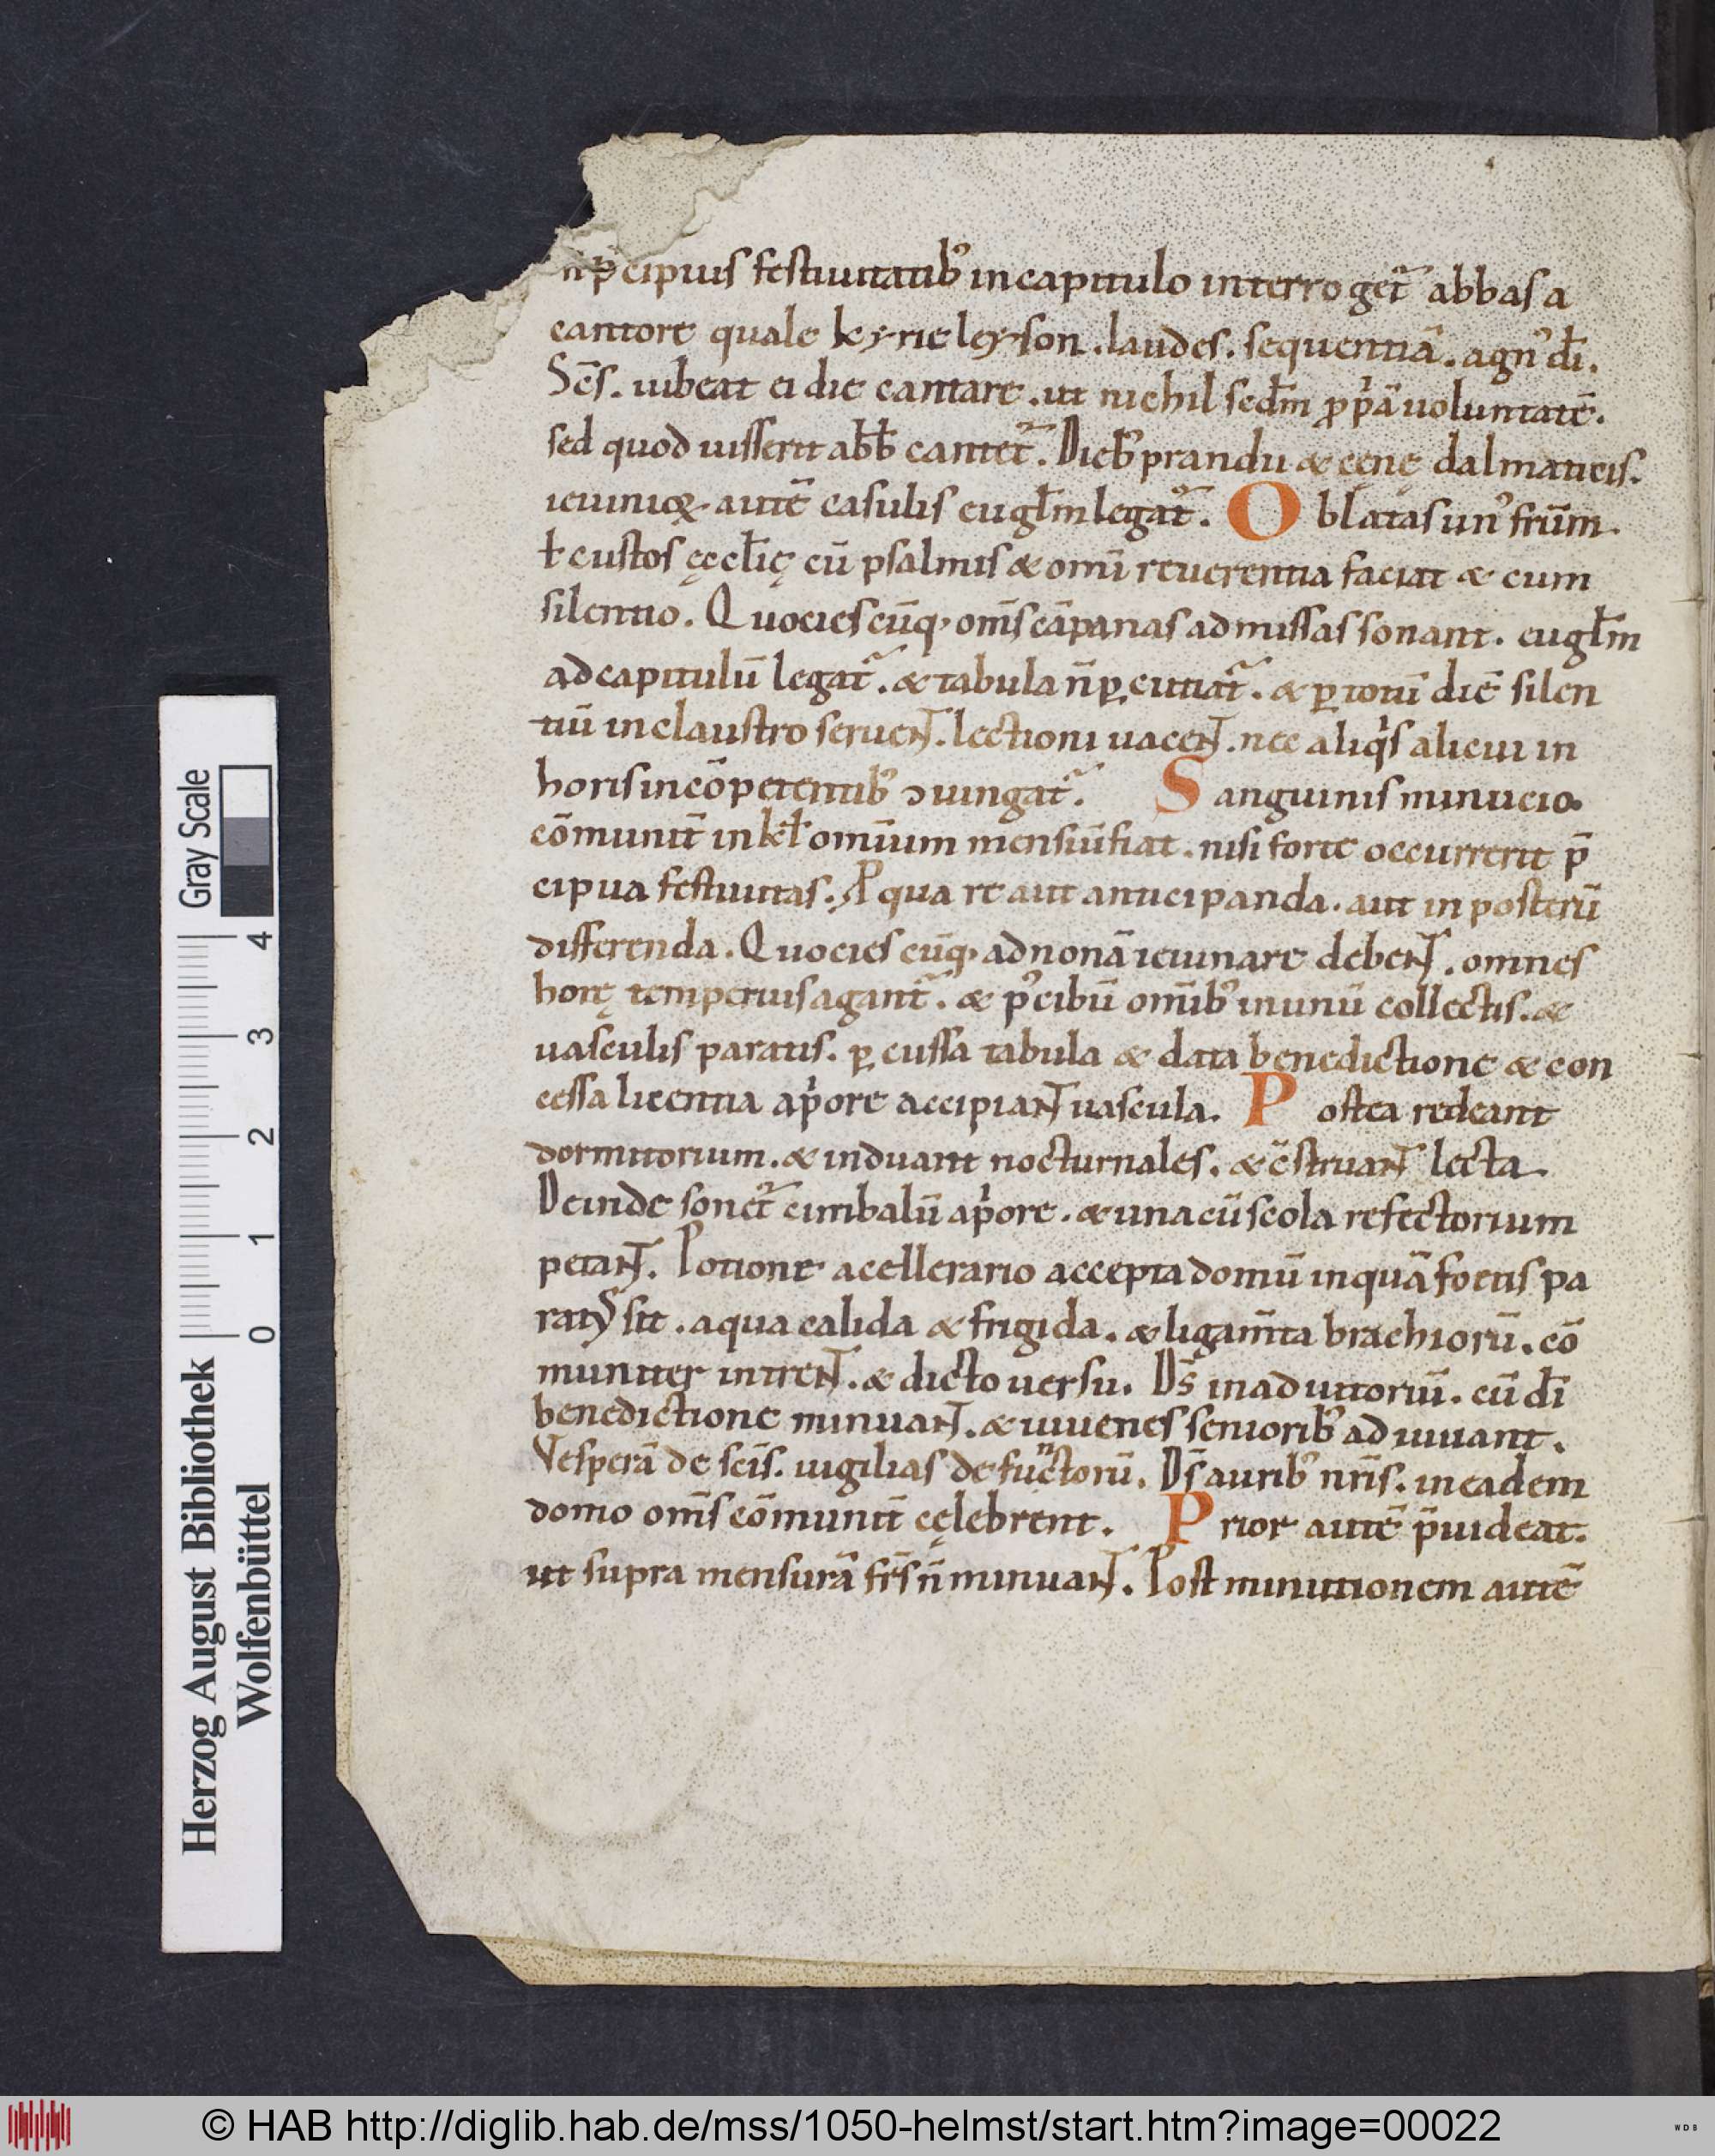 n p̄cipuis festiuitatib᷒ in capitulo interroget᷑ abbas a
cantore quale kyrieleyson . laudes . sequentiā . agn᷒ dī .
Sc̄s . iubeat ei die cantare . ut nichil sedm̄ ꝓpͥā uoluntatē .
sed quod iusserit abb̄ cantet᷑ . Dieb᷒ prandii & cęnę dalmaticis .
ieiunioꝝ autē casulis eugl̄m legat᷑ . Oblatas un᷒ frūm .
ł custos ęccl̄ię cū psalmis & omī reuerentia faciat & cum
silentio . Quociescūq; om̄s cāpanas ad missas sonant . eugl̄m
ad capitulū legat᷑ . & tabula n̄ ꝑcutiat᷑ . & ꝑ totū diē silen
tiū in claustro seruent . lectioni uacent . nec aliqͥs alicui in
horis incōpetentib᷒ ɔiungat᷑ . Sanguinis minucio
cōmunit̄ in kl̄ omīum mensiū fiat . nisi forte occurrerit p̄
cipua festiuitas . A qua re aut anticipanda . aut in posterū
differenda . Quociescūq; ad nonā ieiunare debent . omnes
horę temperius agant᷑ . & p᷒ cibū omīb᷒ in unū collectis . &
uasculis paratis . ꝑcussa tabula & data benedictione & con
cessa licentia a pͥore accipiant uascula . Postea redeant
dormitorium . & induant nocturnales . & c̄struant lecta
Deinde sonet᷑ cimbalū a pͥore . & una cū scola refectorium
petant . Potione a cellerario accepta domū in quā focus pa
ratus sit . aqua calida & frigida . & ligam̄ta brachiorū . cō
muniter intrent . & dicto uersu . Ds̄ in adiutoriū . cū dī
benedictione minuant . & iuuenes seniorib᷒ adiuuant .
Vesperā de scīs . uigilias defūctorū . Ds̄ aurib᷒ nrīs . in eadem
domo om̄s cōmunit̄ cęlebrent . Prior autē p̄uideat .
ut supra mensurā frs̄ n̄ minuant . Post minutionem autē
Herzog August Bibliothek
Wolfenbüttel
0 1 2 3 4
Gray Scale
© HAB http://diglib.hab.de/mss/1050-helmst/start.htm?image=00022
WDB